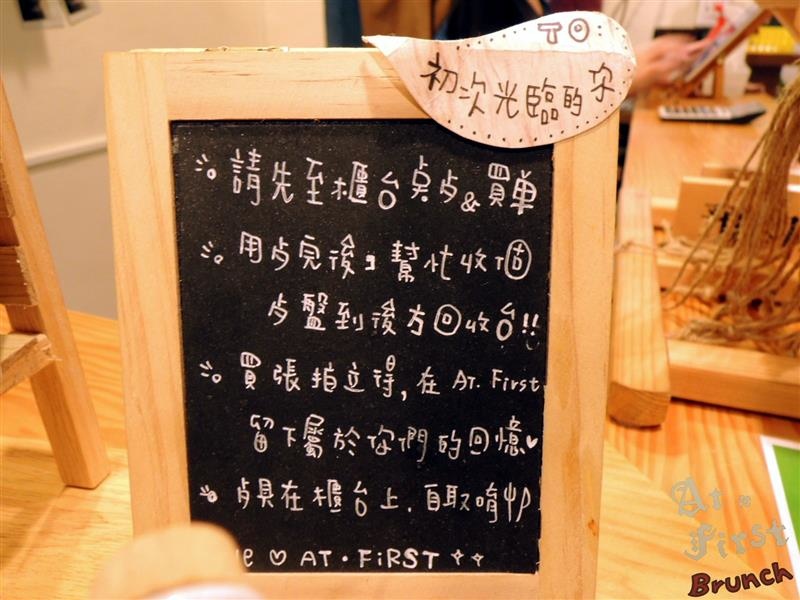 TO:
初次光臨的你
請先至櫃台奌歺&買单
用歺完後,幫忙收個
歺盤到後方回收台!!
買張拍立得,在 AT. First
留下屬於你們的回憶♥
歺具在櫃台上.自取唷
♡ AT·FiRST
At
First
Brunch